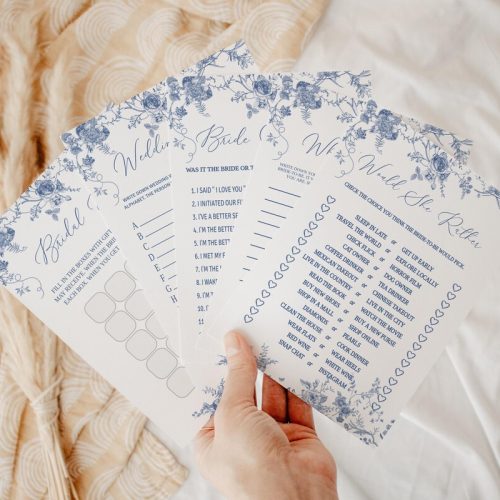 Bridal
FILL IN THE BOXES WITH GIFT
MAY RECEIVE. WHEN THE BRI
EACH BOX. WHEN YOU GET
Weddin
WRITE DOWN WEDDING
ALPHABET. THE PERSON
A
B
C
D
E
F
G
H
Bride
WAS IT THE BRIDE OR T
1. I SAID "I LOVE YOU"
2. INITIATED OUR FI
3. I'VE A BETTER S
4. I'M THE BETTE
5. I'M THE BET
6. I MET MY F
7. I'M THE
8. I'M
9. I'M
10. I
11.
W
WRITE DOWN
BRIDE-TO-BE.
YOU ARE.
Would She Rather
CHECK THE CHOICE YOU THINK THE BRIDE TO BE WOULD PICK
SLEEP IN LATE or GET UP EARLY
TRAVEL THE WORLD or EXPLORE LOCALLY
CHICK FLICK or HORROR FILM
CAT OWNER or DOG OWNER
COFFEE DRINKER or TEA DRINKER
MEXICAN TAKEOUT or CHINESE TAKEOUT
LIVE IN THE COUNTRY or LIVE IN THE CITY
READ THE BOOK or WATCH THE MOVIE
BUY NEW SHOES or BUY A NEW PURSE
SHOP IN A MALL or SHOP ONLINE
DIAMONDS or PEARLS
CLEAN THE HOUSE or COOK DINNER
WEAR FLATS or WEAR HEELS
RED WINE or WHITE WINE
SNAP CHAT or INSTAGRAM